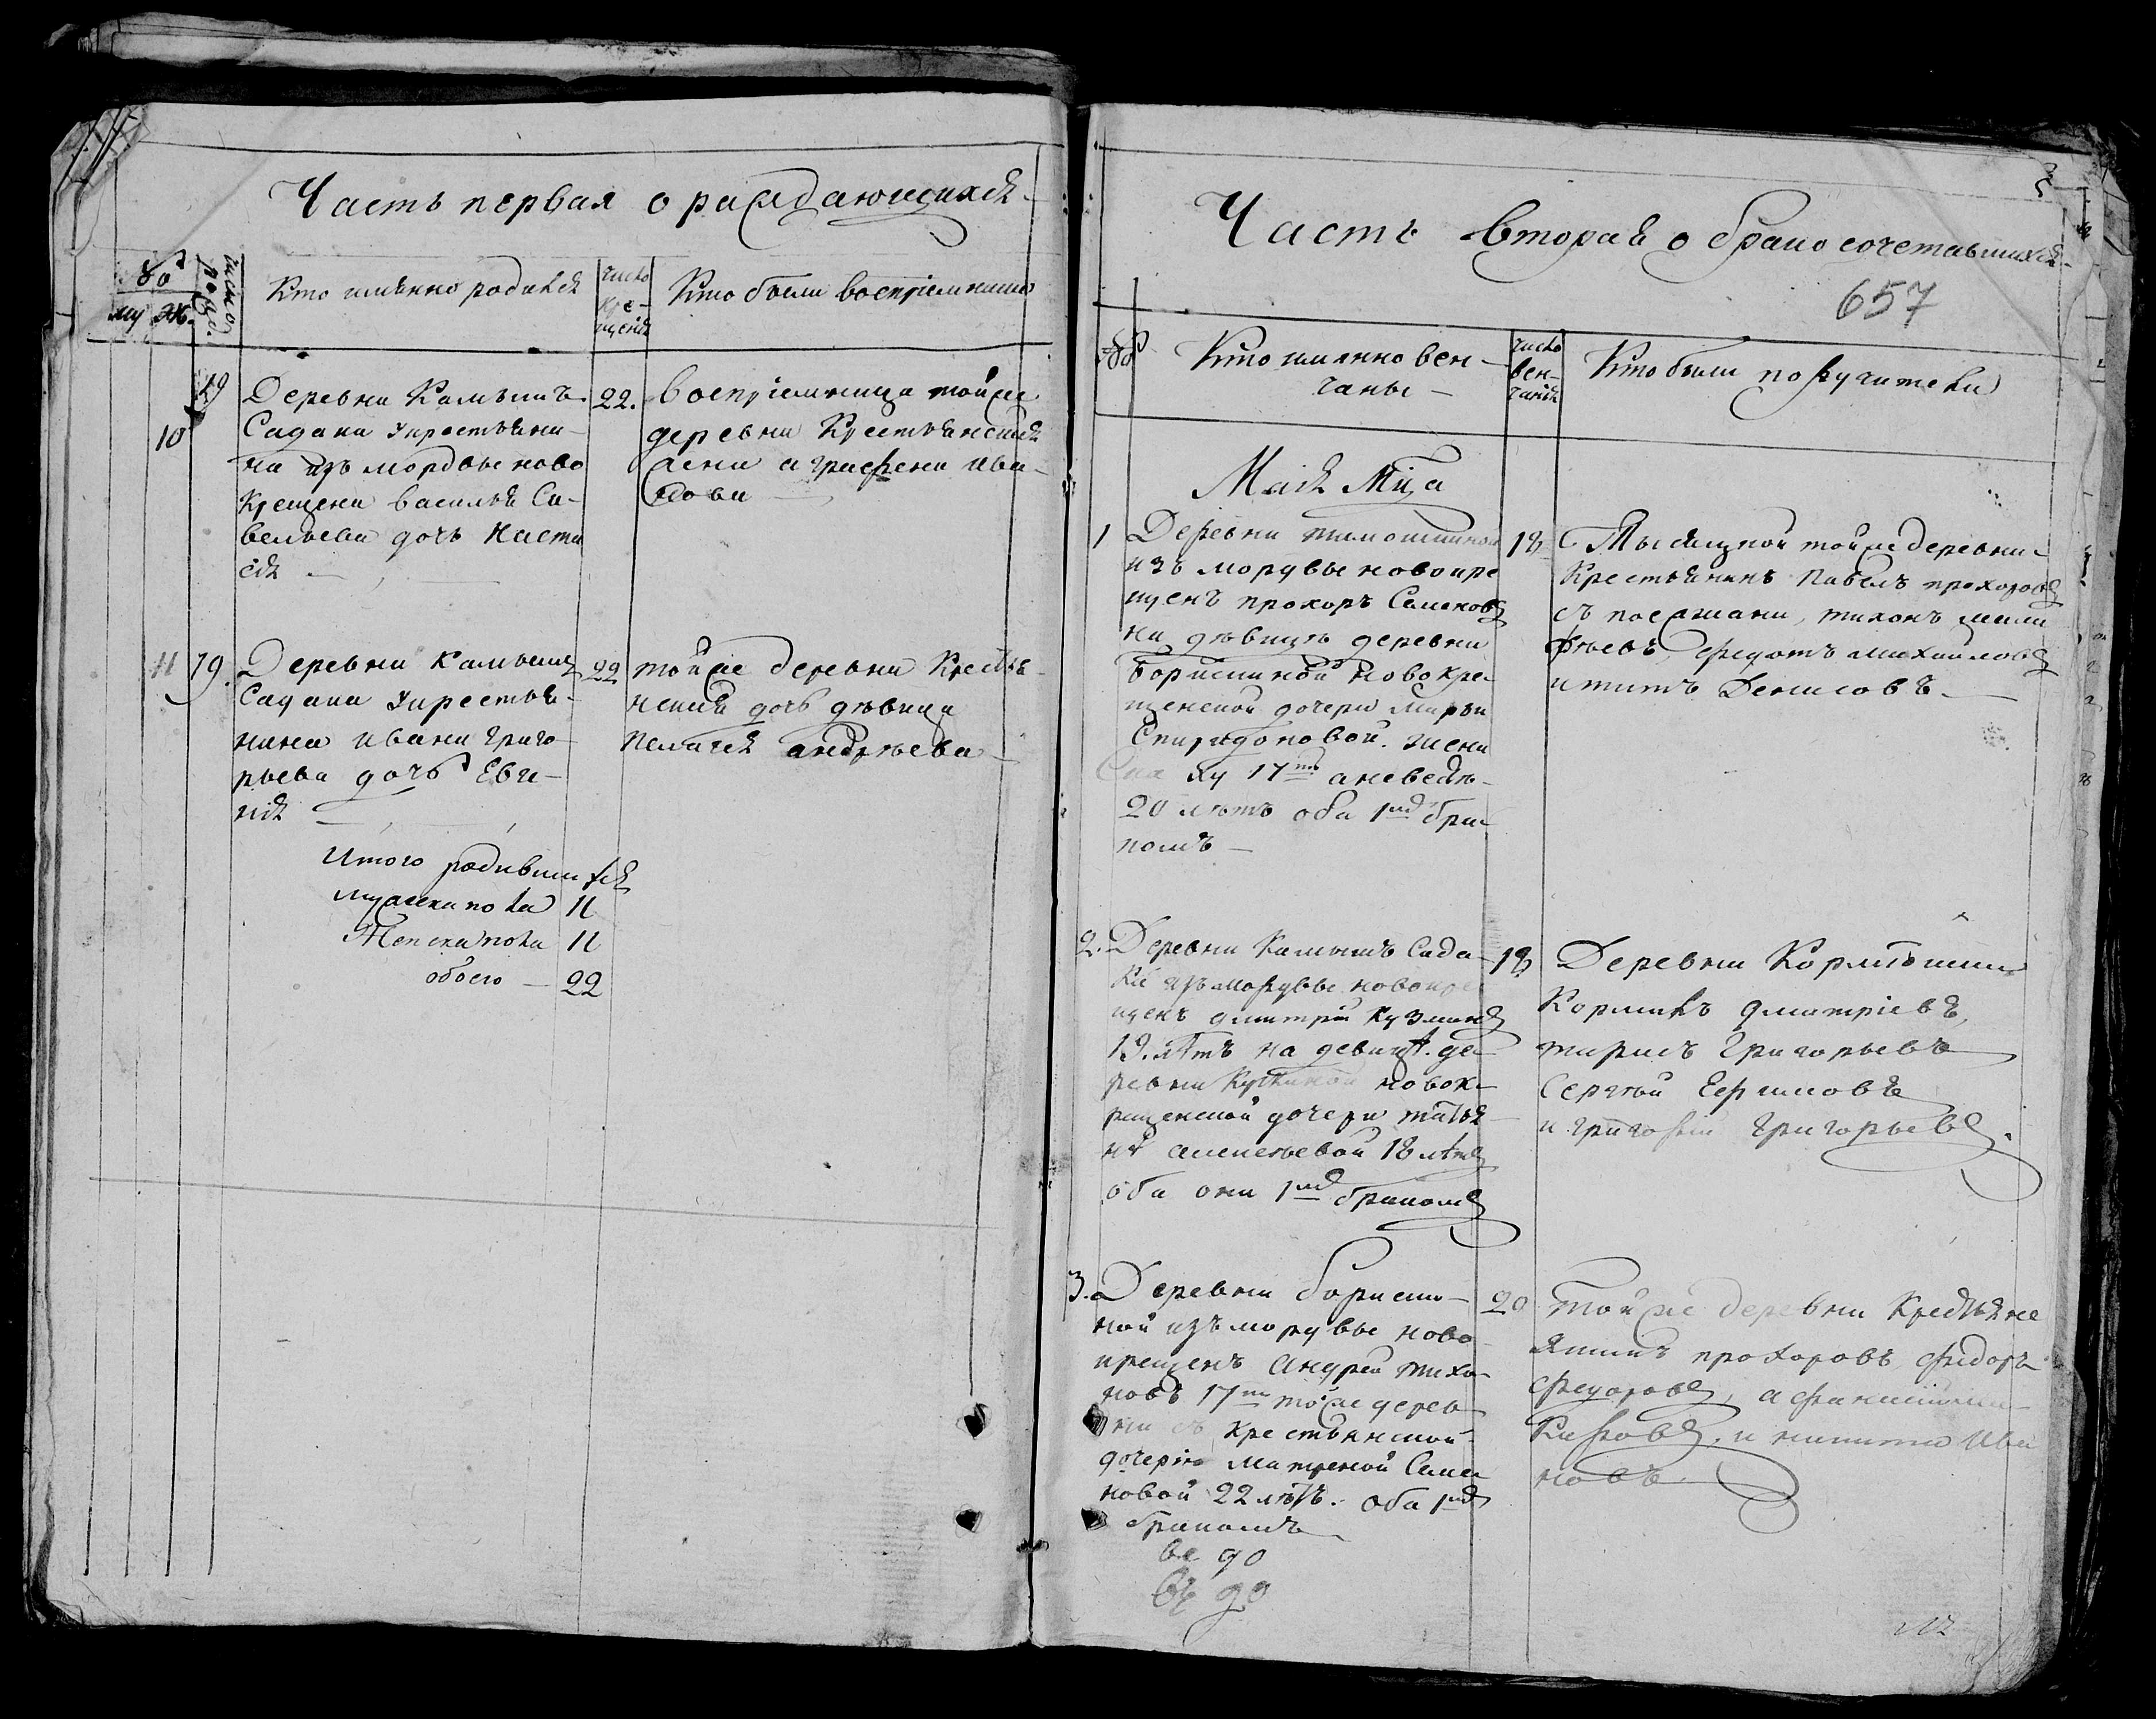 Часть первая о раждающихся
№
му ж.
число рожд.
Кто имянно родился
число кре-
щенія
Кто были воспріемники
10
19
Деревни Камышъ
Садака укрестьяни-
на изъ мордвы ново
крещена василья Са-
вельева дочь Наста
сія
22.
воспріемница тойже
деревни Крестьянская
жена аграфена ива-
нова
11
19.
Деревни Камышъ
Садака укрестья-
нина ивана григо-
рьева дочь Евге-
нія
22
тойже деревни Крестья-
нская дочь дѣвица
пелагея андрѣева
Итого родившихся
мужеска пола 11
Женска пола 11
обоего — 22
Часть вторая о бракосочетавшихся
657
№
Кто имянно вен-
чаны —
число
вен-
чанія
Кто были поручители
Маія Мца
1
Деревни тимошкиной
изъ мордвы новокре
щенъ прохоръ Семеновъ
на дѣвицѣ деревни
борискиной новокре-
щенской дочери марьи
Спиридоновой. жени
ху 17 а невестѣ
20 лѣтъ оба 1мъ бра-
комъ —
18
Тысяцкой тойже деревни
Крестьянинъ Павелъ прохоровъ
съ поезжани, тихонъ
федотъ михайловъ
и титъ Денисовъ
2.
Деревни Камышъ Сада-
ки изъ мордвы новокре
щенъ дмитрій кузминъ
19. лѣтъ на девицѣ де-
ревни новок-
рещенской дочери татья
нѣ алексѣевой 18 лѣтъ
оба они 1мъ бракомъ
18
Деревни
Кормилъ дмитріевъ,
тарасъ Григорьевъ
Сергѣй Ефимовъ
и григорій Григорьевъ.
3.
Деревни бориски-
ной изъ мордвы ново
крещенъ андрей тихо-
новъ 17 тойже дерев-
ни съ крестьянской
дочерью матреной Семе
новой 22 лѣтъ. оба 1мъ
бракомъ
20
тойже деревни Крестьяне
прохоровъ фидоръ
федоровъ, афанасій
и никита ива
новъ